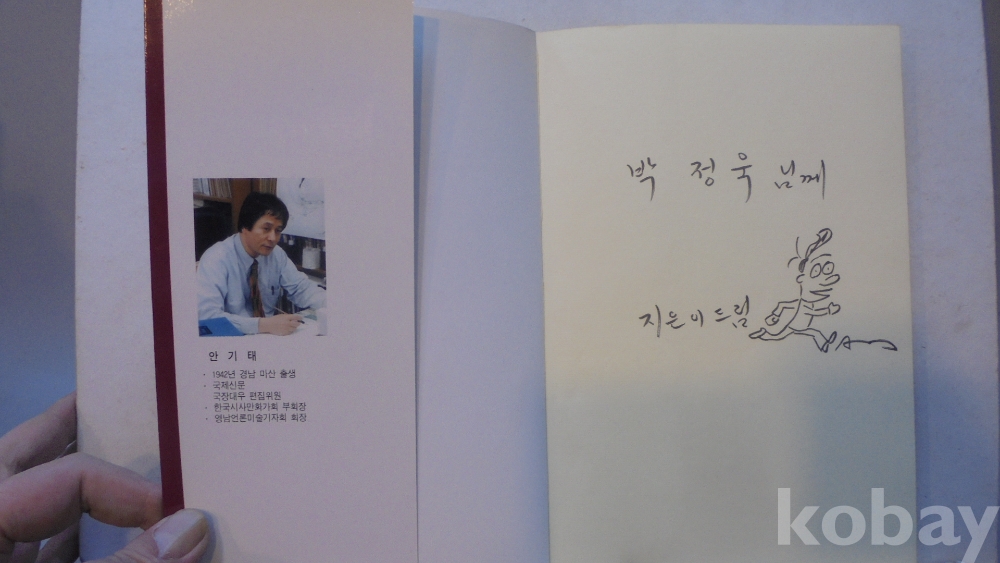 안 기 태
· 1942년 경남 마산 출생
· 국제신문
국장대우 편집위원
· 한국시사만화가회 부회장
· 영남언론미술기자회 회장
박 정 욱 님께
지은이 드림
kobay